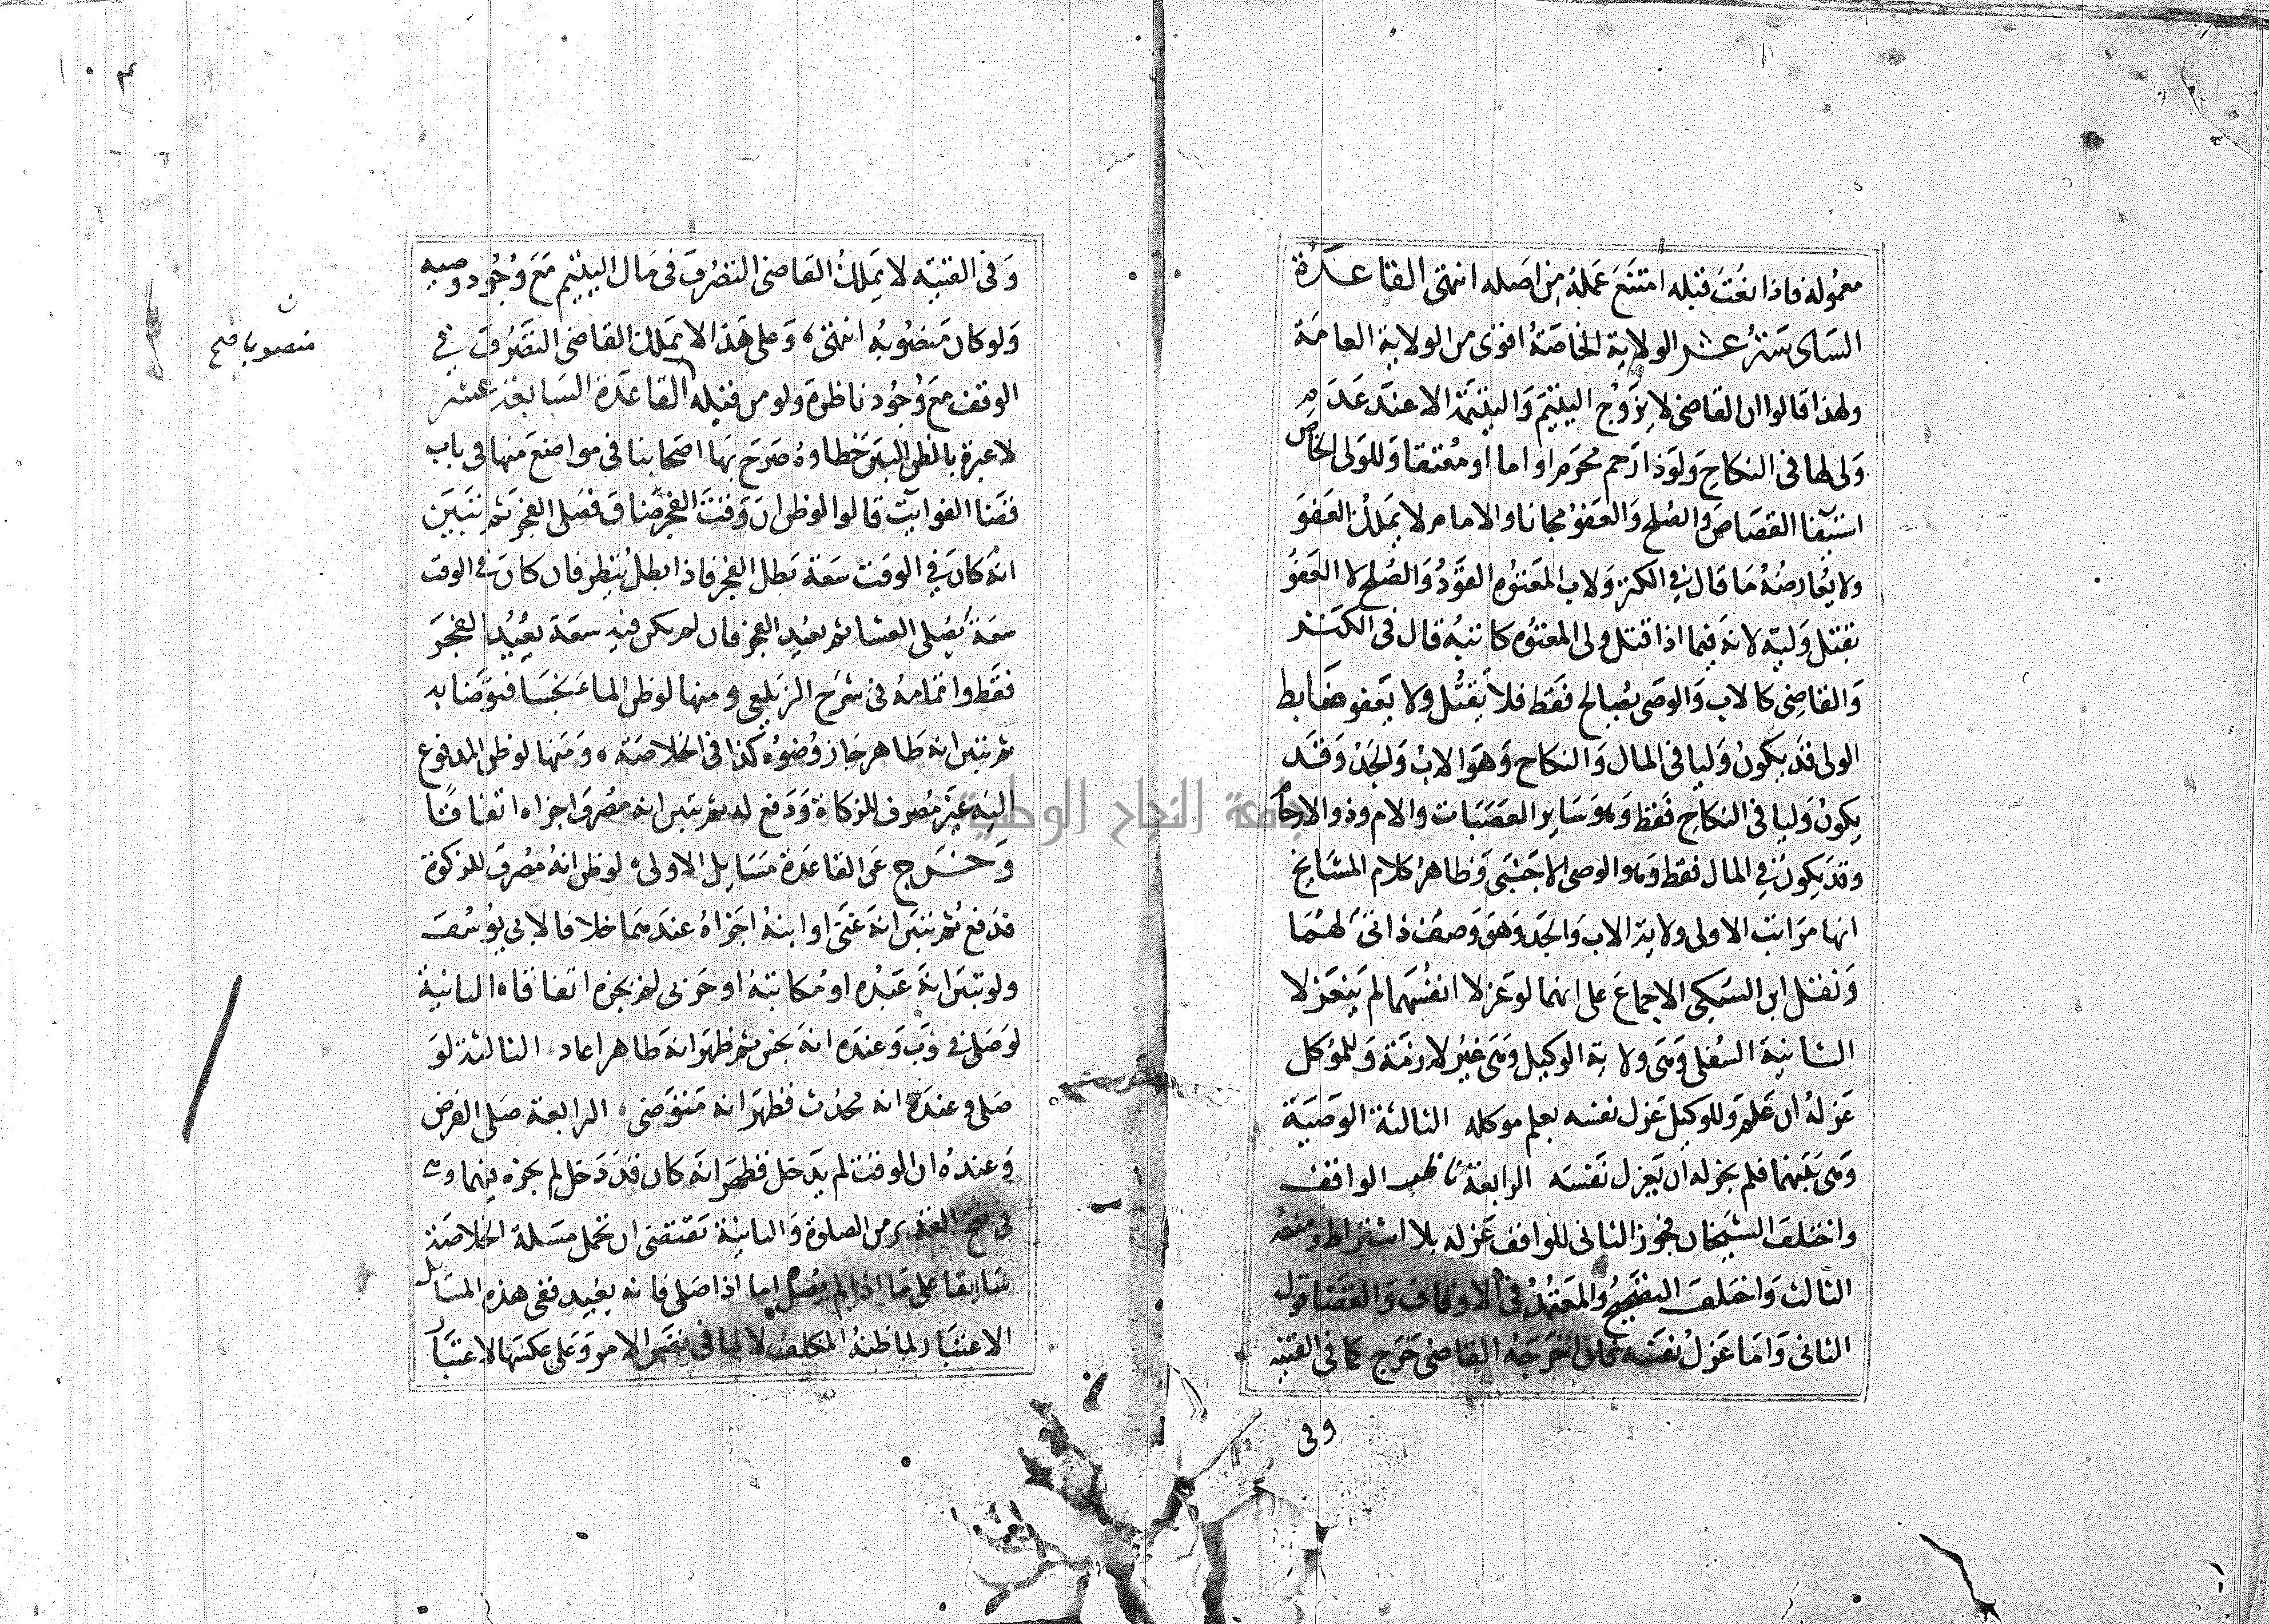 معمولة فاذا نعت قبله امتنع عمله من اصله انتهى القاعدة
السادسة عشر الولاية الخاصة اقوى من الولاية العامة
ولهذا قالوا ان القاضى لا يزوج اليتيم واليتيمة الا عند عدم
ولى لها فى النكاح ولو ذا رحم محرم او اما او معتقا وللولى الخاص
استيفا القصاص والصلح والعفو مجانا والامام لا يملك العفو
ولا يعارضه ما قال فى الكنز ولاب المعتوه القود والصلح لا العفو
بقتل وليه لانه فيما اذا قتل ولى المعتوه كابنه قال فى الكنز
والقاضى كالاب والوصى يصالح فقط فلا يقتل ولا يعفو ضابط
الولى قد يكون وليا فى المال والنكاح وهو الاب والجد وقد
يكون وليا فى النكاح فقط وهو ساير العصبات والام وذو الارحام
وقد يكون فى المال فقط وهو الوصى الاجنبى وظاهر كلام المشايخ
انها مراتب الاولى ولاية الاب والجد وهو وصف ذاتى لهما
ونقل ابن السبكى الاجماع على انهما لو عزلا انفسهما لم ينعزلا
الثانية السفلى وهى ولاية الوكيل وهى غير لازمة وللموكل
عزله ان علم وللوكيل عزل نفسه بعلم موكله الثالثة الوصية
وهى بينهما فلم يجز له ان يعزل نفسه الرابعة ناظر الواقف
واختلف الشيخان فجوز الثانى للواقف عزله بلا اشتراط ومنعه
الثالث واختلف التصحيح والمعتمد فى الاوقاف والقضا قول
الثانى واما عزل نفسه فان اخرجه القاضى خرج كما فى القنيه
وفى
وفى القنيه لا يملك القاضى التصرف فى مال اليتيم مع وجود وصيه
ولو كان منصوبه انتهى وعلى هذا لا يملك القاضى التصرف فى
الوقف مع وجود ناظره ولو من قبله القاعدة السابعة عشر
لا عبرة بالظن البين خطاوه صرح بها اصحابنا فى مواضع منها فى باب
قضا الفوايت قالوا لو ظن ان وقت الفجر ضاق فصلى الفجر ثم تبين
انه كان فى الوقت سعة بطل الفجر فاذا بطل ينظر فان كان فى الوقت
سعة يصلى العشا ثم يعيد الفجر فان لم يكن فيه سعة يعيد الفجر
فقط واتمامه فى شرح الزيلعى ومنها لو ظن الماء نجسا فتوضا به
ثم تبين انه طاهر جاز وضوه كذا فى الخلاصة ومنها لو ظن المدفوع
اليه غير مصرف للزكاة ودفع له ثم تبين انه مصرف اجزاه اتفاقا
وخرج عن القاعدة مسايل الاولى لو ظن انه مصرف للزكوة
فدفع ثم تبين انه غنى او ابنه اجزاه عندهما خلافا لابى يوسف
ولو تبين انه عبده او مكاتبه او حربى لم يجزه اتفاقا الثانية
لو صلى فى ثوب وعنده انه نجس ثم ظهر انه طاهر اعاد الثالثة لو
صلى وعنده انه محدث فظهر انه متوضى الرابعة صلى الفرض
وعنده ان الوقت لم يدخل فظهر انه كان قد دخل لم يجزه فيهما وهى
فى فتح القدير من الصلوة والثانية تقتضى ان تحمل مسلة الخلاصة
سابقا على ما اذا لم يصل اما اذا صلى فانه يعيد ففى هذه المسايل
الاعتبار لما ظنه المكلف لا لما فى نفس الامر وعلى عكسها الاعتبار
منصوبا صح
جامعة النجاح الوطنية